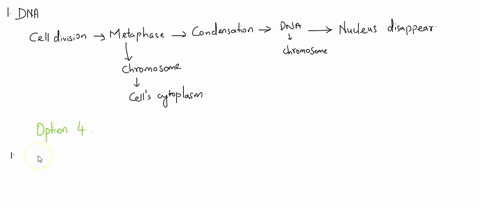 1. DNA
Cell division → Metaphase → Condensation → DNA → Nucleus disappear.
↓ ↓
Chromosome chromosome
↓
Cell's cytoplasm.
Option 4.
1.